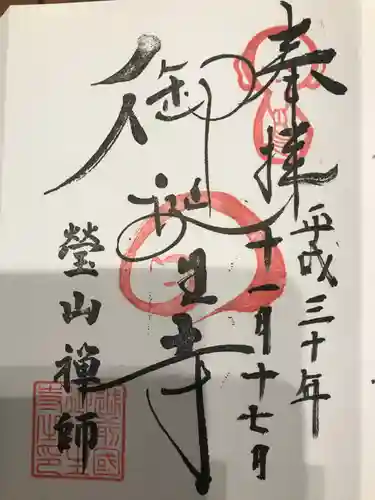 奉拝
平成三十年
十一月十七日
御誕生寺
瑩山禅師